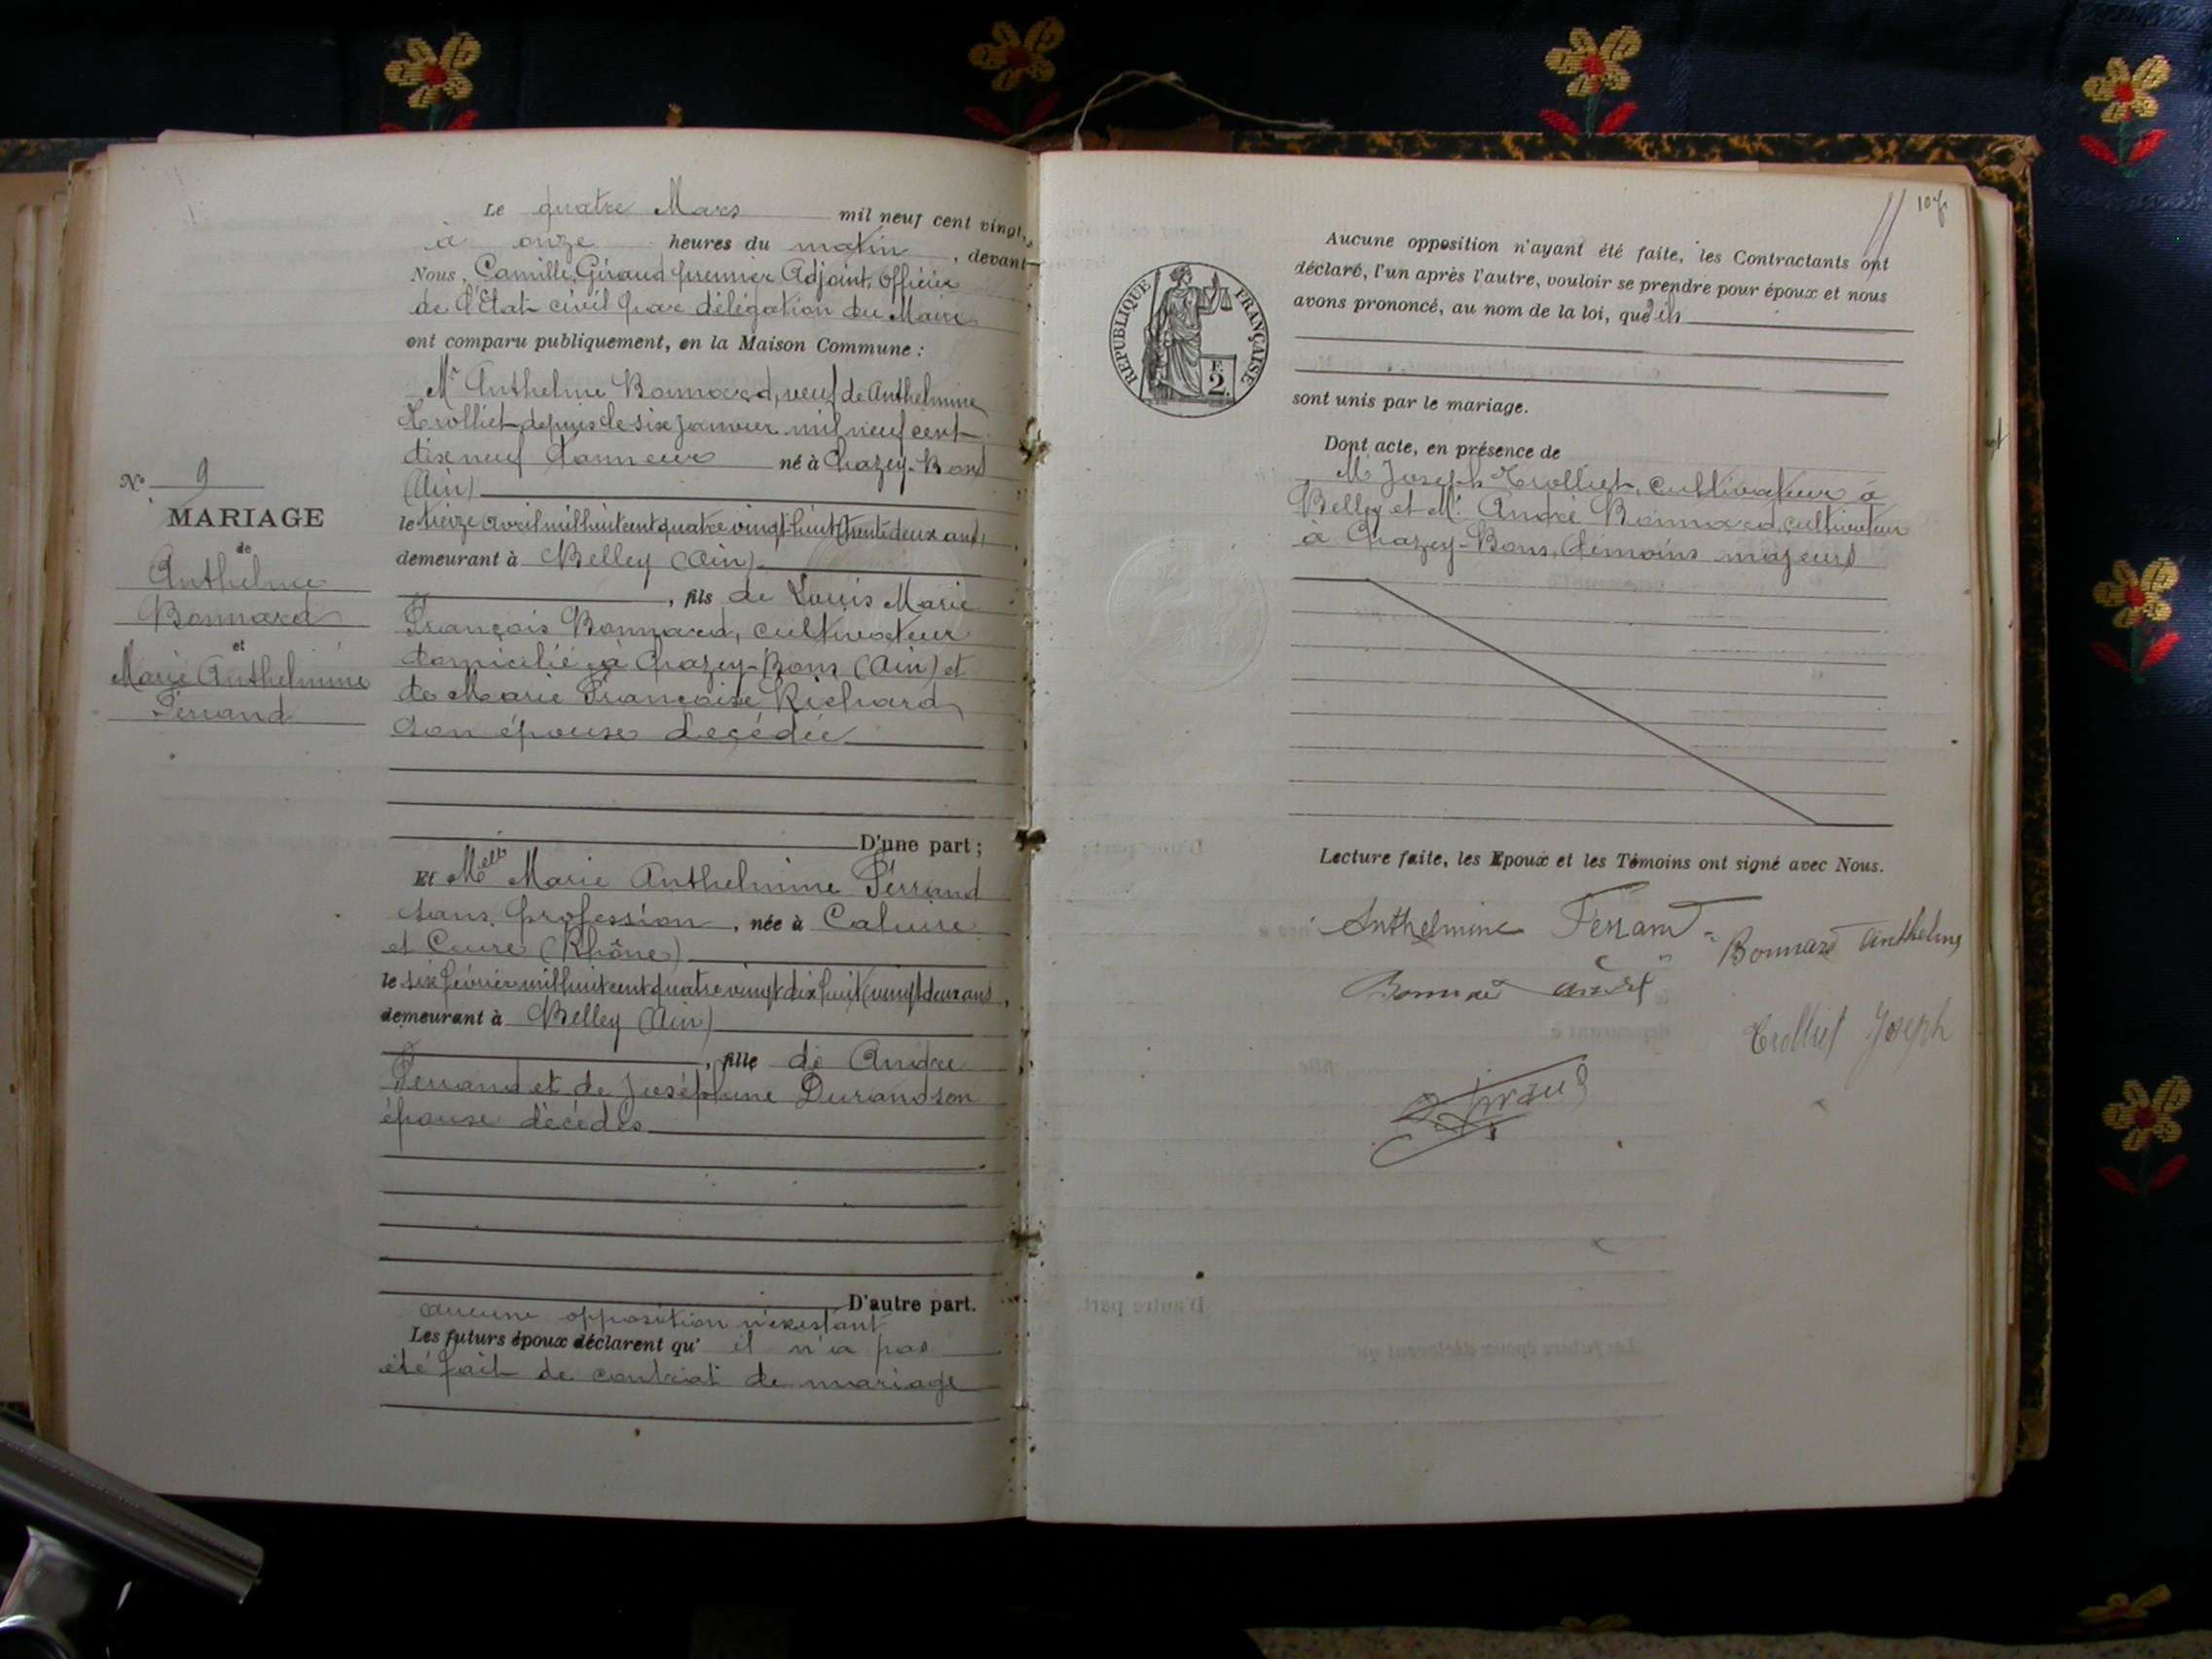 Le quatre Mars mil neuf cent vingt,
à onze heures du matin, devant
Nous, Camille Giraud premier Adjoint, Officier
de l'Etat civil par délégation du Maire
ont comparu publiquement, en la Maison Commune :
Mr Anthelme Bonnard, veuf de Anthelmine
Trolliet depuis le six janvier mil neuf cent
dix neuf né à Chazey-Bons
(Ain)
le treize avril mil huit cent quatre vingt huit (trente deux ans)
demeurant à Belley (Ain)
, fils de Louis Marie
François Bonnard, cultivateur
domicilié à Chazey-Bons (Ain) et
de Marie Françoise Richard
son épouse décédée
D'une part ;
No 9
MARIAGE
de
Anthelme
Bonnard
et
Marie Anthelmine
Ferrand
Et Melle Marie Anthelmine Ferrand
sans profession, née à Caluire
et Cuire (Rhône)
le six février mil huit cent quatre vingt dix huit (vingt deux ans,
demeurant à Belley (Ain)
, fille de André
Ferrand et de Joséphine Durand son
épouse décédés
D'autre part.
aucune opposition n'existant
Les futurs époux déclarent qu' il n'a pas
été fait de contrat de mariage
107
RÉPUBLIQUE FRANÇAISE
F.
2.
Aucune opposition n'ayant été faite, les Contractants ont
déclaré, l'un après l'autre, vouloir se prendre pour époux et nous
avons prononcé, au nom de la loi, qu'ils
sont unis par le mariage.
Dont acte, en présence de
M. Joseph Trolliet, cultivateur à
Belley et M. André Bonnard, cultivateur
à Chazey-Bons, témoins majeurs
Lecture faite, les Epoux et les Témoins ont signé avec Nous.
Anthelmine Ferrand
Bonnard Anthelme
Bonnard André
Trolliet Joseph
Giraud